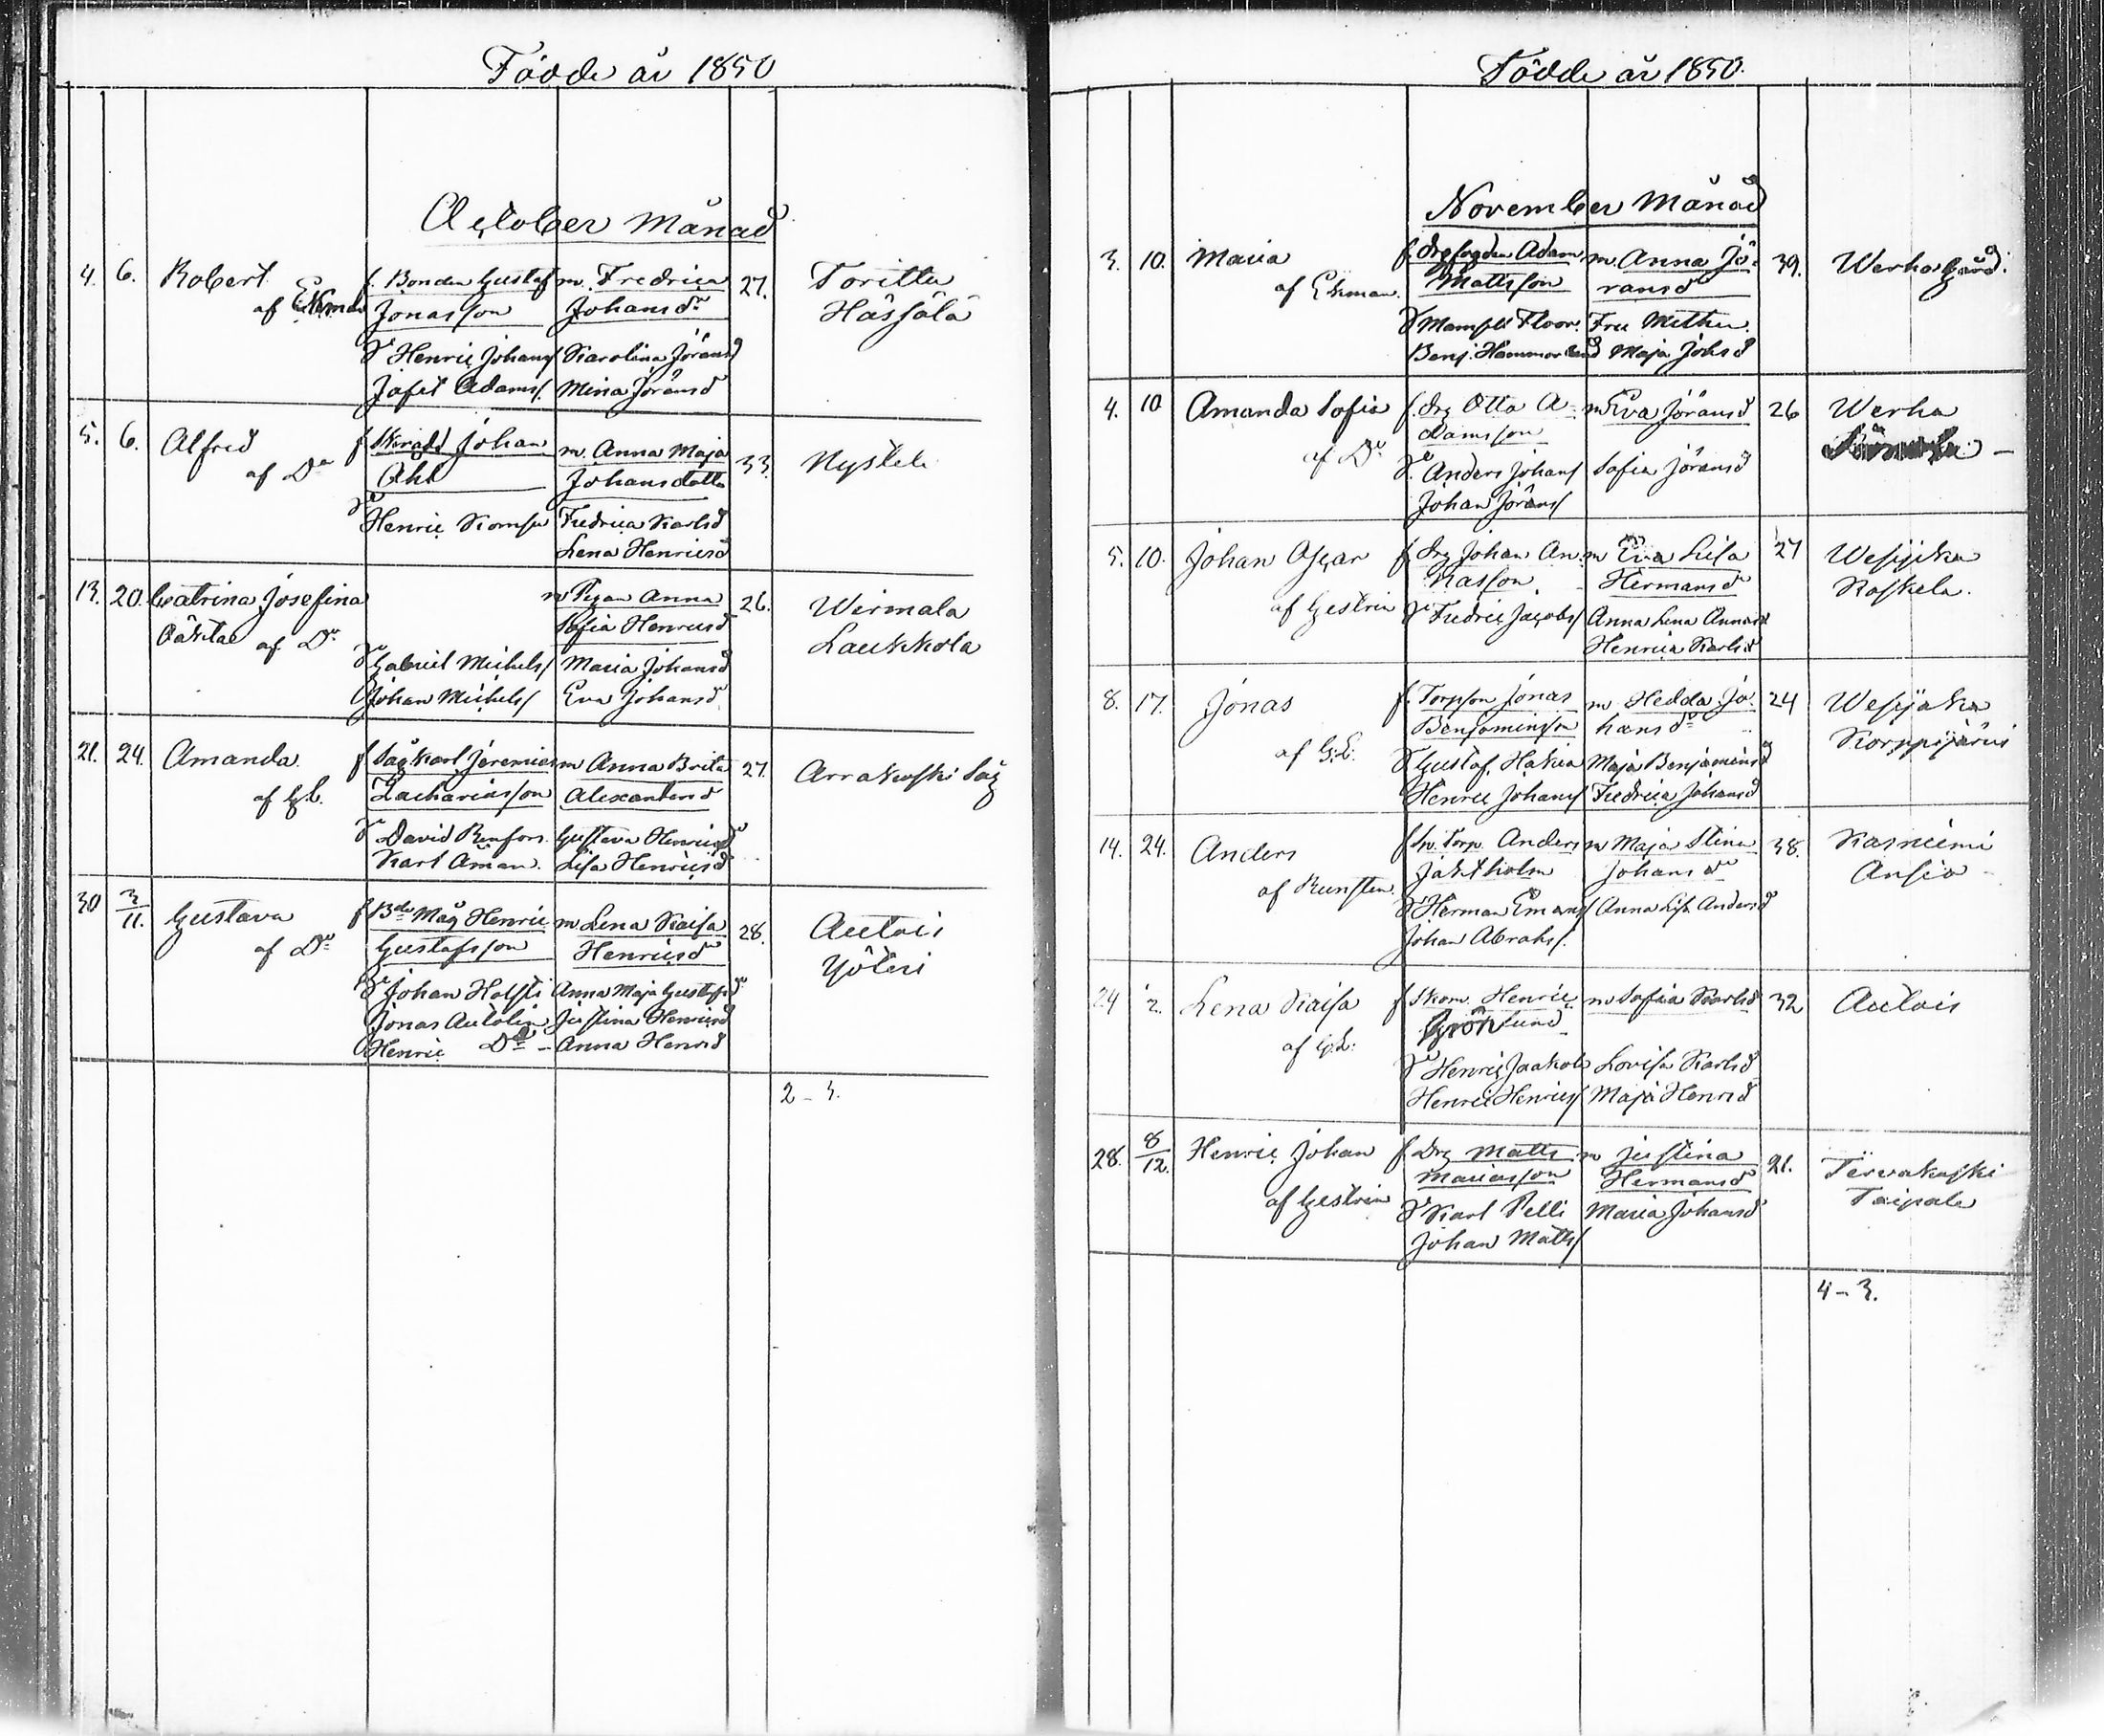 Födde år 1850
October Månad
4. 6. Robert f. Bonden Gustaf m. Fredrica 27. Toritta
af Ekman Jonasson Johansdr Hässälä
Henric Johans/ Karolina Jöransd
Jafet Adams/ Mina Jöransd
5. 6. Alfred f Johan m. Anna Maja 33. Nystele
af Do Ahl Johansdotter
Henric Fredrica Karlsd
Lena Henricsd
13. 20. Catrina Josefina m Pigan Anna 26. Wirmala
Oäkta af Do Sofia Henricsd Laukkola
Gabriel Michels/ Maria Johansd
Johan Michels/ Eva Johansd
21. 24. Amanda f Sågkarl Jeremias m Anna Brita 27. Arrakoski Såg
af G.L. Zachariasson Alexandersd
David Renfors Gustava Henricsd
Karl Åman. Lisa Henricsd
30 3/11. Gustava f Bde Måg Henric m Lena Kaisa 28. Autois
af Do Gustafsson Henricsd Yöteri
Johan Holsti Anna Maja Gustafsd
Jonas Autolin Justina Henricsd
Henric Do – Anna Henrsd
2 – 3.
Födde år 1850.
November Månad
3. 10. Maria f. Adam m. Anna Jö- 39. Werho Gård.
af Ekman. Mattsson ransd
Floor. Fru
Benj. Hammarland Maja Johsd
4. 10 Amanda Sofia f. Drg Otto A- m Eva Jöransd 26 Werho
af Do damsson
Anders Johans/ Sofia Jöransd
Johan Jörans/
5. 10. Johan Oscar f. Drg Johan An- m Eva Lisa 27 Wesijaka
nasson Hermansd Koskela.
af Gestrin Fredric Jacobs/ Anna Lena Annasd
Henrica Karlsd
8. 17. Jonas f. Torpson Jonas m Hedda Jo- 24 Wesijako
Benjaminson hansdr Korppijärvi
af G.L. Gustaf Hakia Maja Benjaminsd
Henric Johans/ Fredrica Johansd
14. 24. Anders f Torp. Anders m Maja Stina 38. Kasniemi
Jaktholm Johansd Ansio
af Runsten. Herman Emans/ Anna Lisa Andersd
Johan Abrahs/.
24 1/2. Lena Kaisa f Skom. Henric m Sofia Karlsd 32 Autois
Grönlund
af G.L. Henric Jaakola Lovisa Karlsd
Henric Henrics/ Maja Henrsd
28. 8/12. Henric Johan f. Drg Matts m Justina 21. Tervakoski
Mariasson Hermansd Taipale
af Gestrin Karl Pelli Maria Johansd
Johan Matts/
4 – 3.